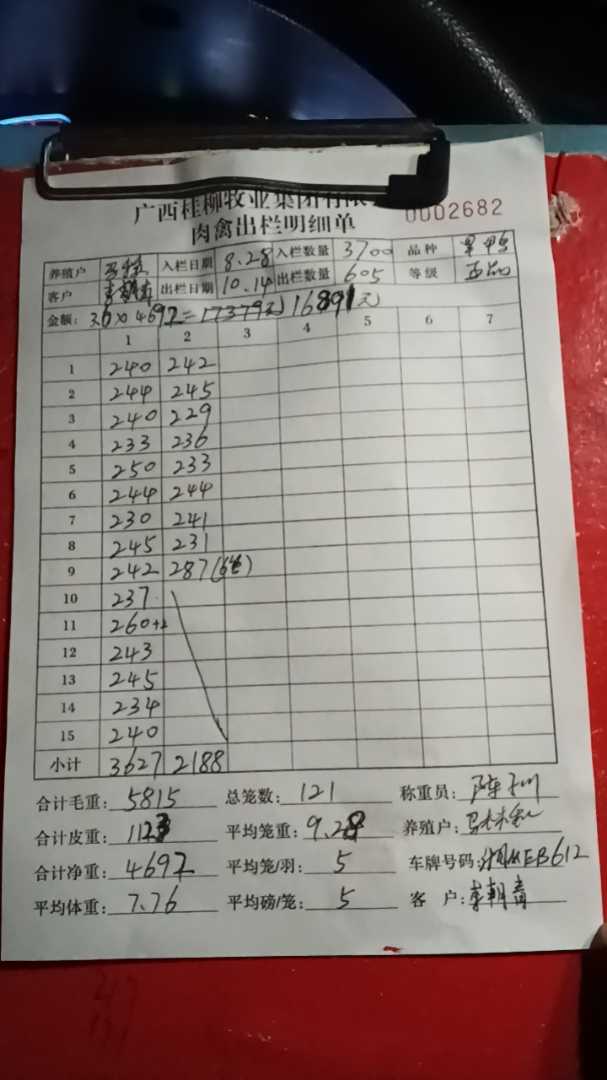 广西桂柳牧业集团有限
肉禽出栏明细单
0002682
养殖户 入栏日期 8.28 入栏数量 3700 品种
客户 出栏日期 10.14 出栏数量 605 等级 正品
金额: 3.6×4692=17379元 16891元
1 2 3 4 5 6 7
1 240 242
2 244 245
3 240 229
4 233 236
5 250 233
6 244 244
7 230 241
8 245 231
9 242 287
10 237
11 260+2
12 243
13 245
14 234
15 240
小计 3627 2188
合计毛重: 5815 总笼数: 121 称重员:
合计皮重: 1123 平均笼重: 9.28 养殖户:
合计净重: 4692 平均笼/羽: 5 车牌号码:
平均体重: 7.76 平均磅/笼: 5 客 户: 李朝青